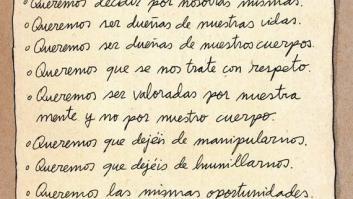 ◦ Queremos decidir por nosotras mismas.
◦ Queremos ser dueñas de nuestras vidas.
◦ Queremos ser dueñas de nuestros cuerpos.
◦ Queremos que se nos trate con respeto.
◦ Queremos ser valoradas por nuestra
mente y no por nuestro cuerpo.
◦ Queremos que dejéis de manipularnos.
◦ Queremos que dejéis de humillarnos.
◦ Queremos las mismas oportunidades.